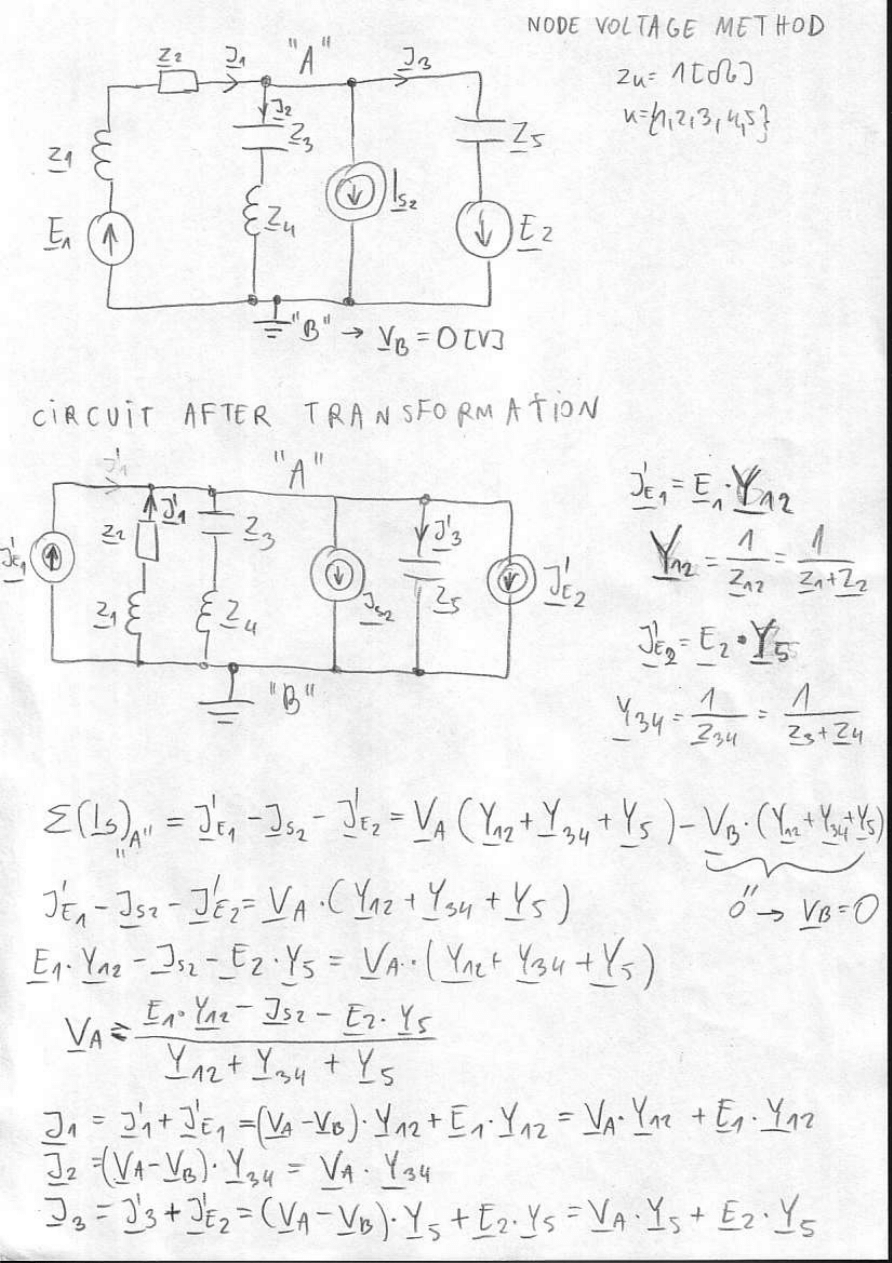 NODE VOLTAGE METHOD
Zu = 1[Ω]
u={1,2,3,4,5}
Z2 I1 "A" I3
I2
Z1 Z3 Z5
E1 Z4 Is2 E2
"B" → VB = 0[V]
CIRCUIT AFTER TRANSFORMATION
J'1 "A"
J'E1 = E1·Y12
Z2 J'1 Z3 J'3
J'E1 Z1 Z4 Js2 Z5 J'E2
Y12 = 1/Z12 = 1/(Z1+Z2)
J'E2 = E2·Y5
"B"
Y34 = 1/Z34 = 1/(Z3+Z4)
Σ(Is)"A" = J'E1 - Js2 - J'E2 = VA (Y12 + Y34 + Y5) - VB·(Y12+Y34+Y5)
J'E1 - Js2 - J'E2 = VA·(Y12 + Y34 + Y5)
0" → VB=0
E1·Y12 - Js2 - E2·Y5 = VA·(Y12 + Y34 + Y5)
VA = (E1·Y12 - Js2 - E2·Y5)/(Y12 + Y34 + Y5)
J1 = J'1 + J'E1 = (VA-VB)·Y12 + E1·Y12 = VA·Y12 + E1·Y12
J2 = (VA-VB)·Y34 = VA·Y34
J3 = J'3 + J'E2 = (VA-VB)·Y5 + E2·Y5 = VA·Y5 + E2·Y5